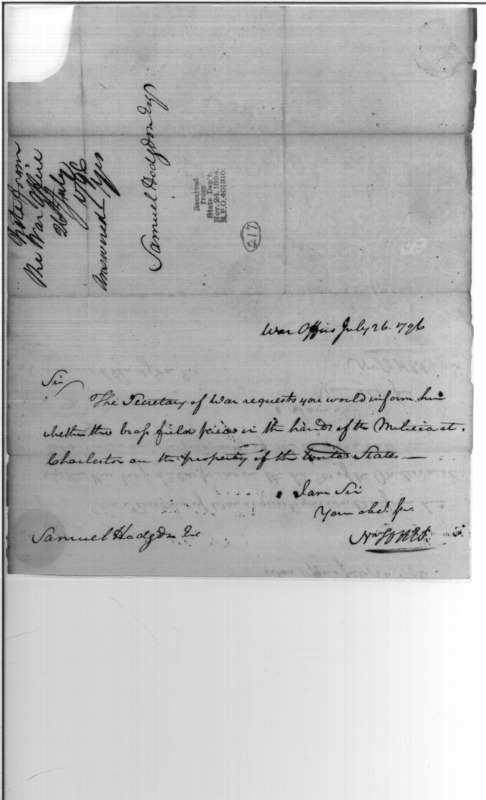 Note from
the War Office
26 July
1796
Answered Yes
Samuel Hodgdon Esqr
Received
from
State Dep't.
Nov. 24, 1894.
R.P.O. 401310.
217
War Office July 26. 1796
Sir
The Secretary of War requests you would inform him
whether the brass field pieces in the hands of the Militia at
Charleston are the property of the United States —
I am Sir
Your obed. Ser.
Samuel Hodgdon Esq